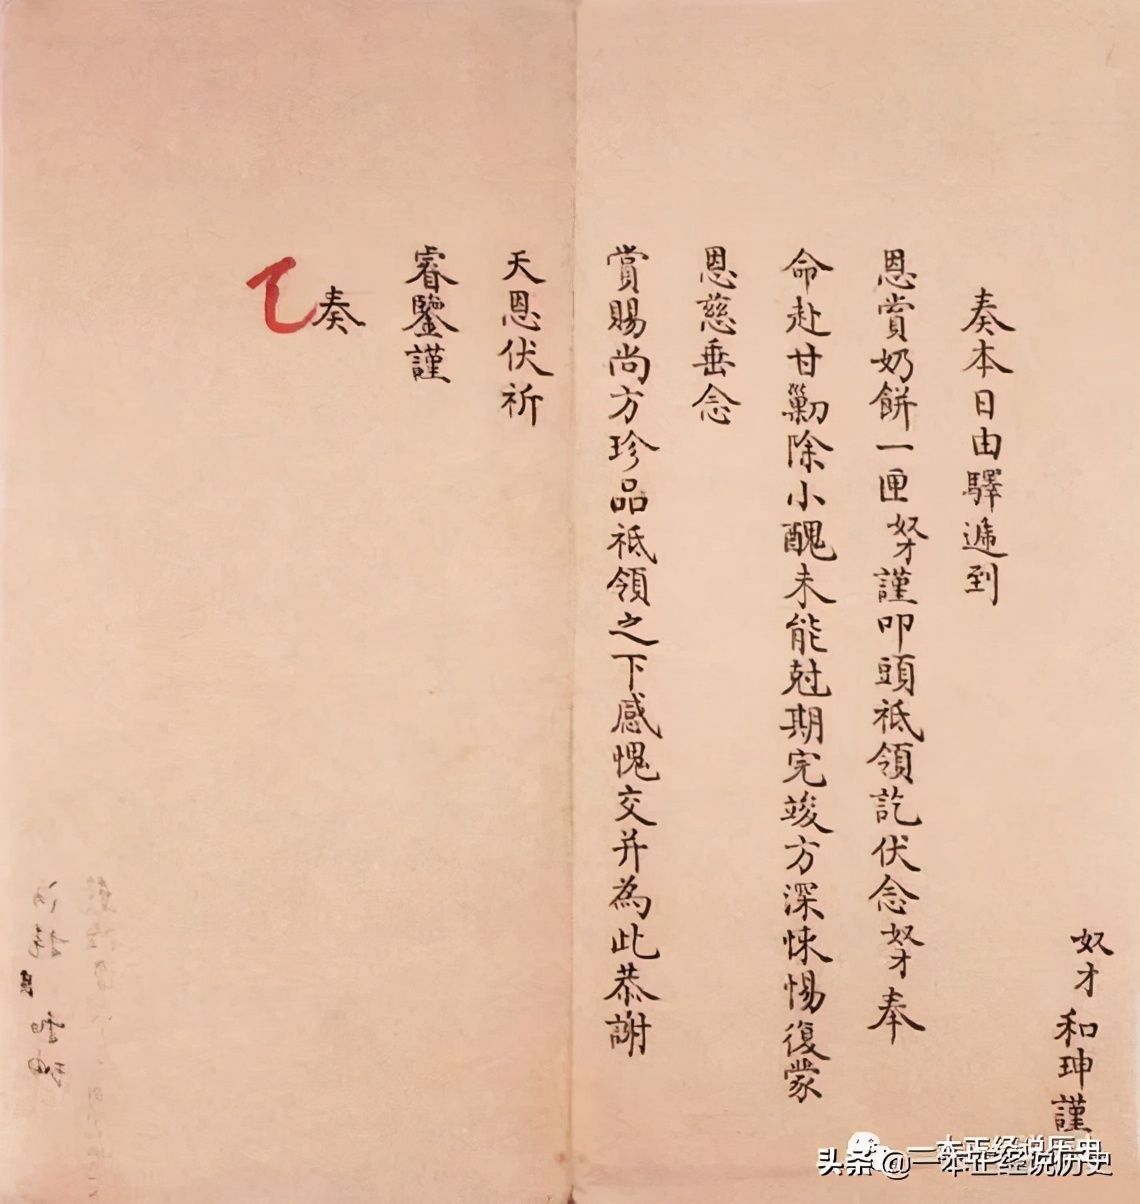 奴才和珅謹
奏本日由驛遞到
恩賞奶餅一匣奴才謹叩頭祗領訖伏念奴才奉
命赴甘勦除小醜未能尅期完竣方深悚惕復蒙
恩慈垂念
賞賜尚方珍品祗領之下感愧交并為此恭謝
天恩伏祈
睿鑒謹
奏
一本正经说历史
头条 @一本正经说历史